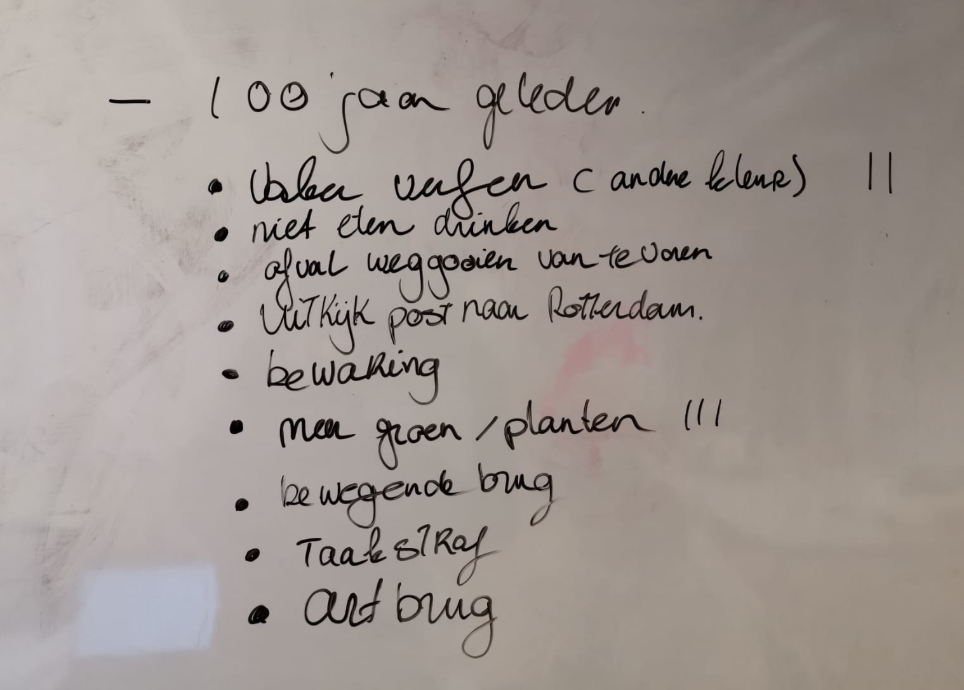 — 100 jaar geleden.
• Vaker verfen (andere kleur) ||
• niet eten drinken
• afval weggooien van te voren
• Uitkijk post naar Rotterdam.
• bewaking
• meer groen / planten |||
• bewegende brug
• Taakstraf
• Art brug